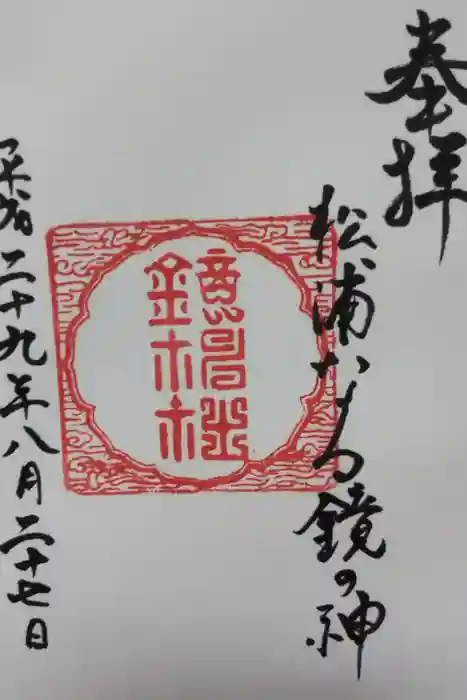 奉拝
松浦なる鏡の神
平成二十九年八月二十七日